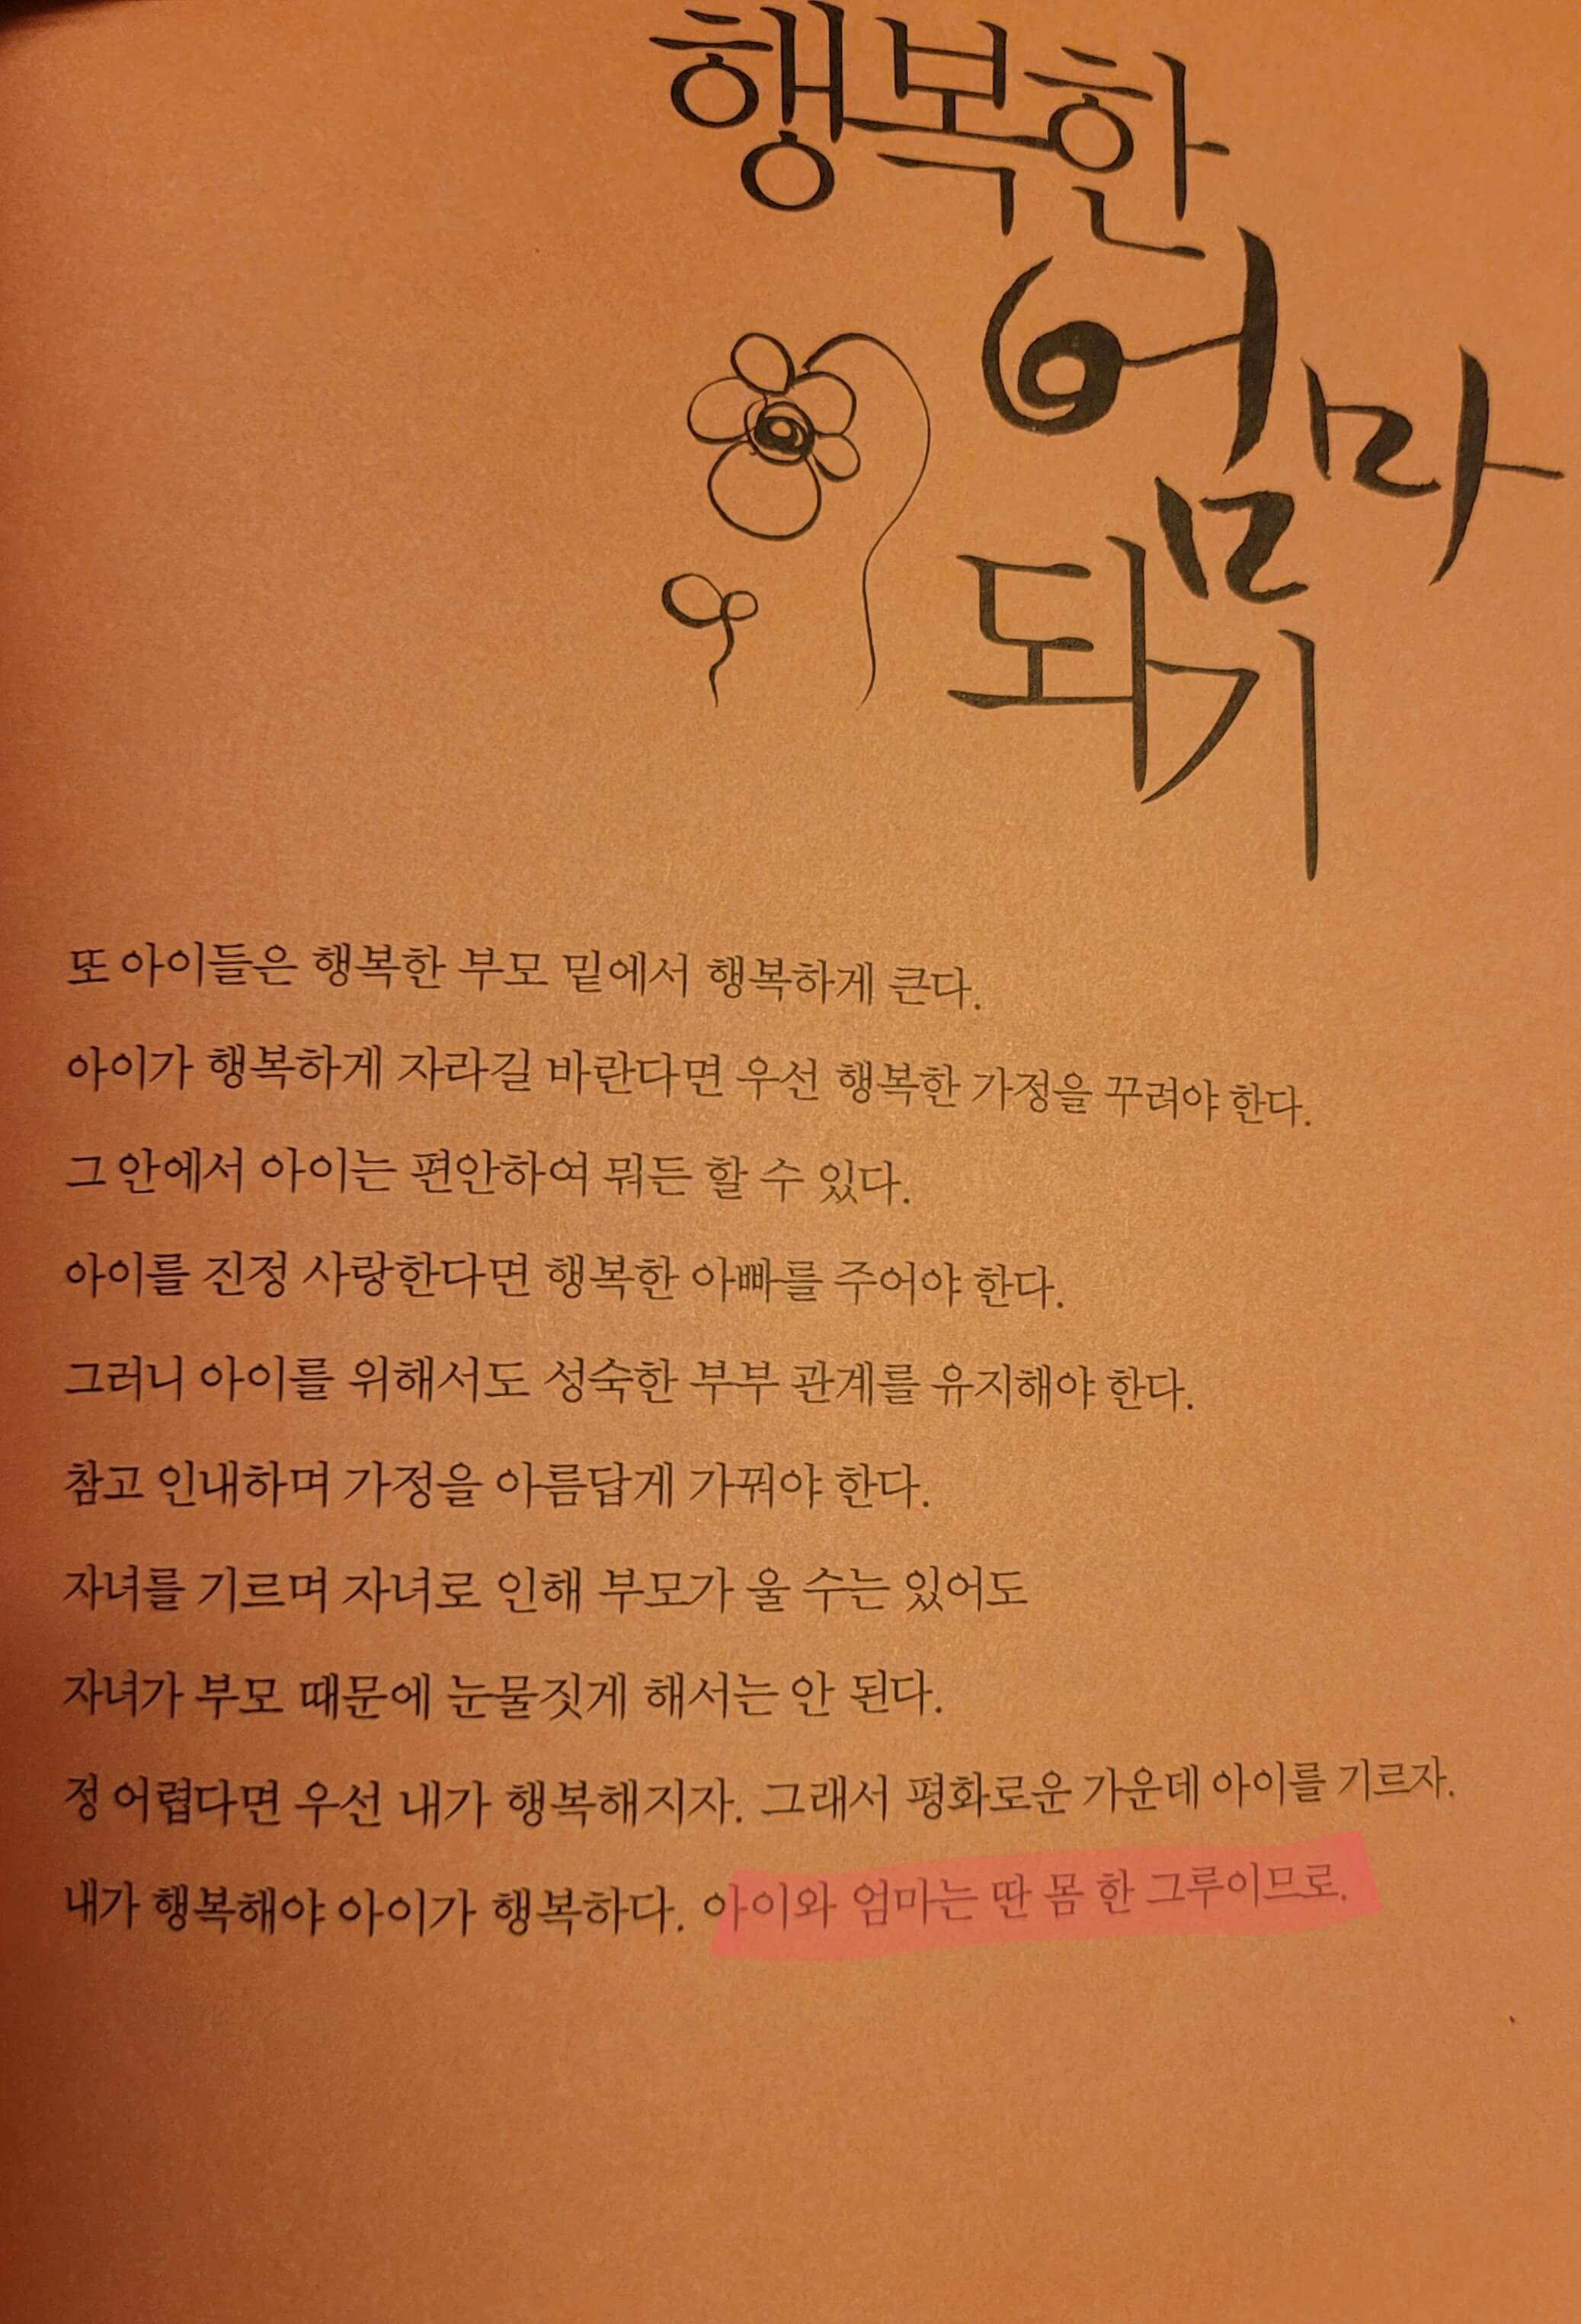 행복한
엄마
되기
또 아이들은 행복한 부모 밑에서 행복하게 큰다.
아이가 행복하게 자라길 바란다면 우선 행복한 가정을 꾸려야 한다.
그 안에서 아이는 편안하여 뭐든 할 수 있다.
아이를 진정 사랑한다면 행복한 아빠를 주어야 한다.
그러니 아이를 위해서도 성숙한 부부 관계를 유지해야 한다.
참고 인내하며 가정을 아름답게 가꿔야 한다.
자녀를 기르며 자녀로 인해 부모가 울 수는 있어도
자녀가 부모 때문에 눈물짓게 해서는 안 된다.
정 어렵다면 우선 내가 행복해지자. 그래서 평화로운 가운데 아이를 기르자.
내가 행복해야 아이가 행복하다. 아이와 엄마는 딴 몸 한 그루이므로.